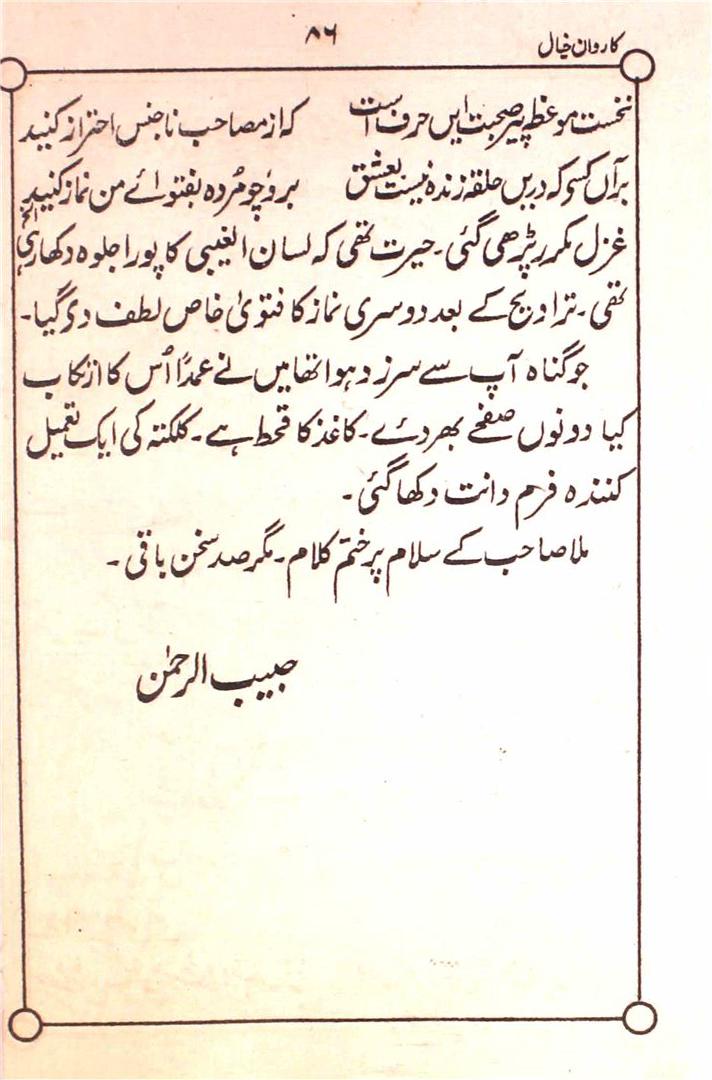 کاروان خیال
۸۶
نخست موعظہ پیر صحبت ایں حرف است کہ از مصاحب ناجنس احتراز کنید
بر آں کسو کہ دریں حلقہ زندہ نیست بعشق برو چو مُردہ بفتوائے من نماز کنید الخ
غزل مکرر پڑھی گئی۔ حیرت تھی کہ لسان الغیبی کا پورا جلوہ دکھا رہی
تھی۔ تراویح کے بعد دوسری نماز کا فتویٰ خاص لطف دی گیا۔
جو گناہ آپ سے سرزد ہوا تھا میں نے عمداً اُس کا ارتکاب
کیا دونوں صفحے بھر دئے۔ کاغذ کا قحط ہے۔ کلکتہ کی ایک تعمیل
کنندہ فرم دانت دکھا گئی۔
ملا صاحب کے سلام پر ختم کلام۔ مگر صد سخن باقی۔
حبیب الرحمٰن